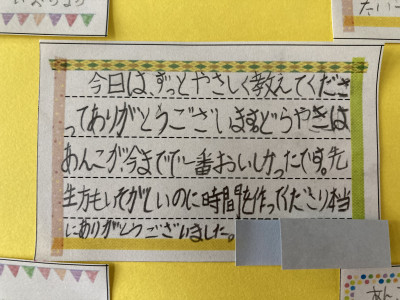 今日は、ずっとやさしく教えてくださ
ってありがとうございます。どらやきは
あんこが、今までで一番おいしかったです。先
生方もいそがしいのに時間を作ってくださり本当
にありがとうございました。